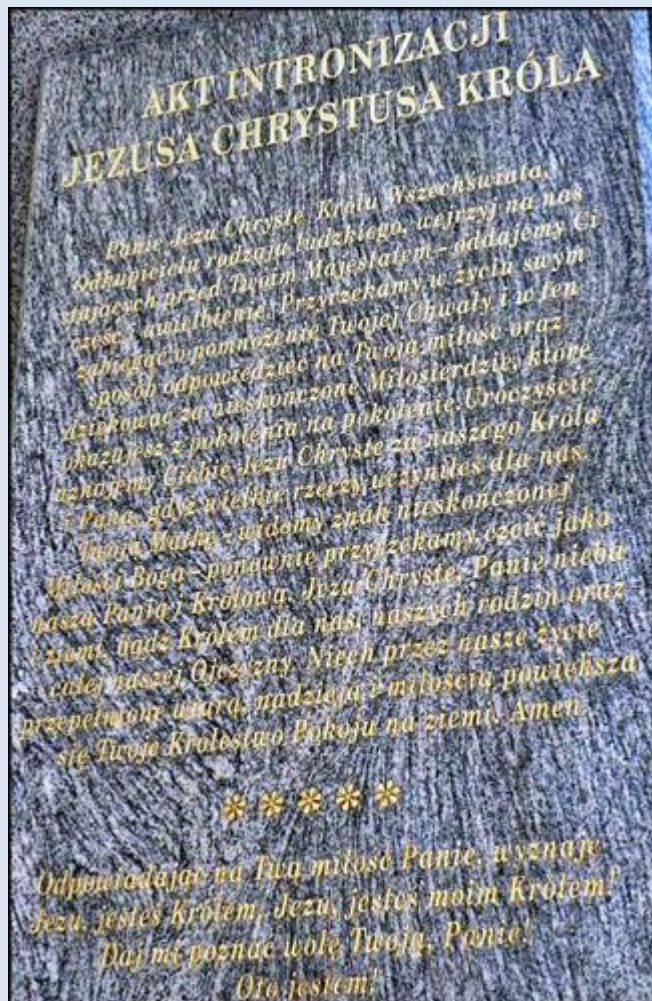 AKT INTRONIZACJI
JEZUSA CHRYSTUSA KRÓLA
Panie Jezu Chryste, Królu Wszechświata,
Odkupicielu rodzaju ludzkiego, wejrzyj na nas
stojących przed Twoim Majestatem - oddajemy Ci
cześć i uwielbienie. Przyrzekamy w życiu swym
zabiegać o pomnożenie Twojej Chwały i w ten
sposób odpowiedzieć na Twoją miłość oraz
dziękować za nieskończone Miłosierdzie, które
okazujesz z pokolenia na pokolenie. Uroczyście
uznajemy Ciebie Jezu Chryste za naszego Króla
i Pana, gdyż wielkie rzeczy uczyniłeś dla nas.
Twoją Matkę - widomy znak nieskończonej
Miłości Boga - ponownie przyrzekamy czcić jako
naszą Panią i Królową. Jezu Chryste, Panie nieba
i ziemi, bądź Królem dla nas, naszych rodzin oraz
całej naszej Ojczyzny. Niech przez nasze życie
przepełnione wiarą, nadzieją i miłością powiększa
się Twoje Królestwo Pokoju na ziemi. Amen.
* * * * *
Odpowiadając na Twą miłość Panie, wyznaję
Jezu, jesteś Królem, Jezu, jesteś moim Królem!
Daj mi poznać wolę Twoją, Panie!
Oto jestem!